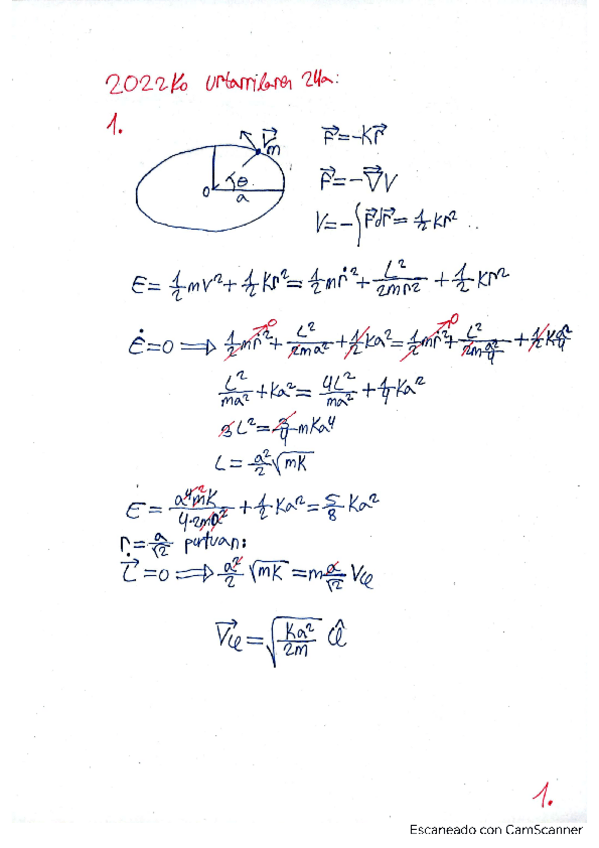 2022ko urtarrilaren 24a:
1.
V⃗ m θ O a
F⃗=-Kr⃗
F⃗=-∇⃗V
V=-∫F⃗dr⃗=1/2 Kr²
E=1/2 mv²+1/2 Kr²=1/2 mṙ²+L²/2mr²+1/2 Kr²
Ė=0 ⟹ 1/2 mṙ²→0+L²/2ma²+1/2 Ka²=1/2 mṙ²→0+L²/2m a²/4+1/2 K a²/4
L²/ma²+Ka²=4L²/ma²+1/4 Ka²
3L²=3/4 mKa⁴
L=a²/2 √mK
E=a⁴mK/4·2ma²+1/2 Ka²=5/8 Ka²
r=a/√2 puntuan:
L⃗̇=0 ⟹ a²/2 √mK=m a/√2 Vφ
V⃗φ=√Ka²/2m φ̂
1.
Escaneado con CamScanner